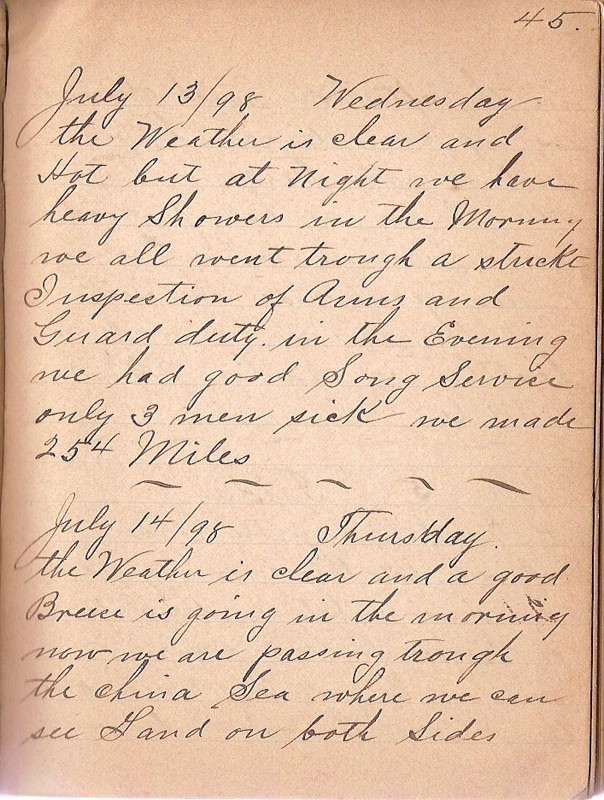 45.
July 13/98 Wednesday
the Weather is clear and
Hot but at Night we have
heavy Showers in the Morning
we all went trough a strickt
Inspestion of Arms and
Guard duty. in the Evening
we had good Song Service
only 3 men sick we made
254 Miles
July 14/98 Thursday.
the Weather is clear and a good
Breeze is going in the morning
now we are passing trough
the china Sea where we can
see Land on both Sides